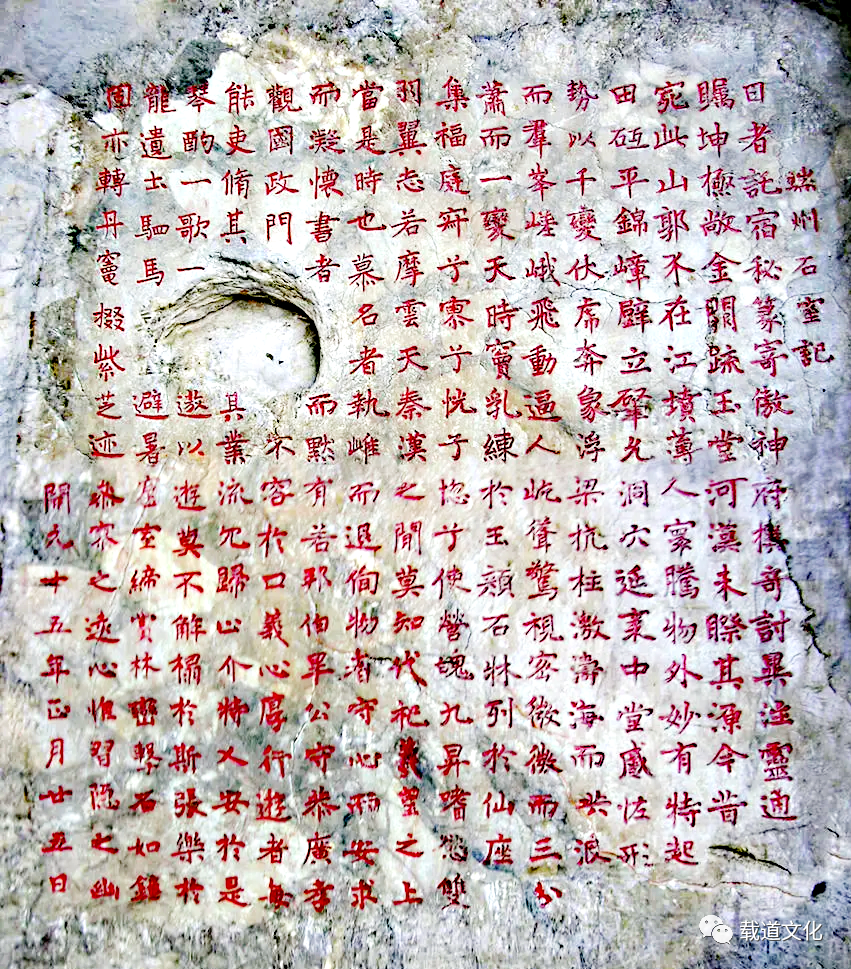 端州石室記
日者託宿秘篆寄傲神府撲奇討異注靈通
矚坤極敞金闕疏玉堂河漢未睽其源今昔
宛此山郭不在江墳薄人寰騰物外妙有特起
田砥平錦嶂壁立肇允洞穴延袤中堂盛怪形
勢以千變伏虎奔象浮梁抗柱激濤海而洪浪
而羣峯嵯峨飛動逼人屹聳驚視密微微而三分
蕭而一變天時竇乳練於玉顏石牀列於仙座
集福庭寂兮寥兮恍子惚兮使營魄九昇嗜慾雙
羽翼志若摩雲天秦漢之間莫知代祀羲望之上
當是時也慕名者執雌而退徇物者守心而安求
而凝懷書者而默有若邦伯畢公守恭廣孝
觀國政門不容於口義心厚行遊者每
能吏脩其其業流冗歸心介特乂安於是
琴酌一歌一遨以遊莫不解榻於斯張樂於
龍遺士駟馬避暑窟室締賞林巒擊石如鍾
固亦轉丹竈掇紫芝迹參寥之遠心惟習隱之幽
開元十五年正月廿五日
载道文化